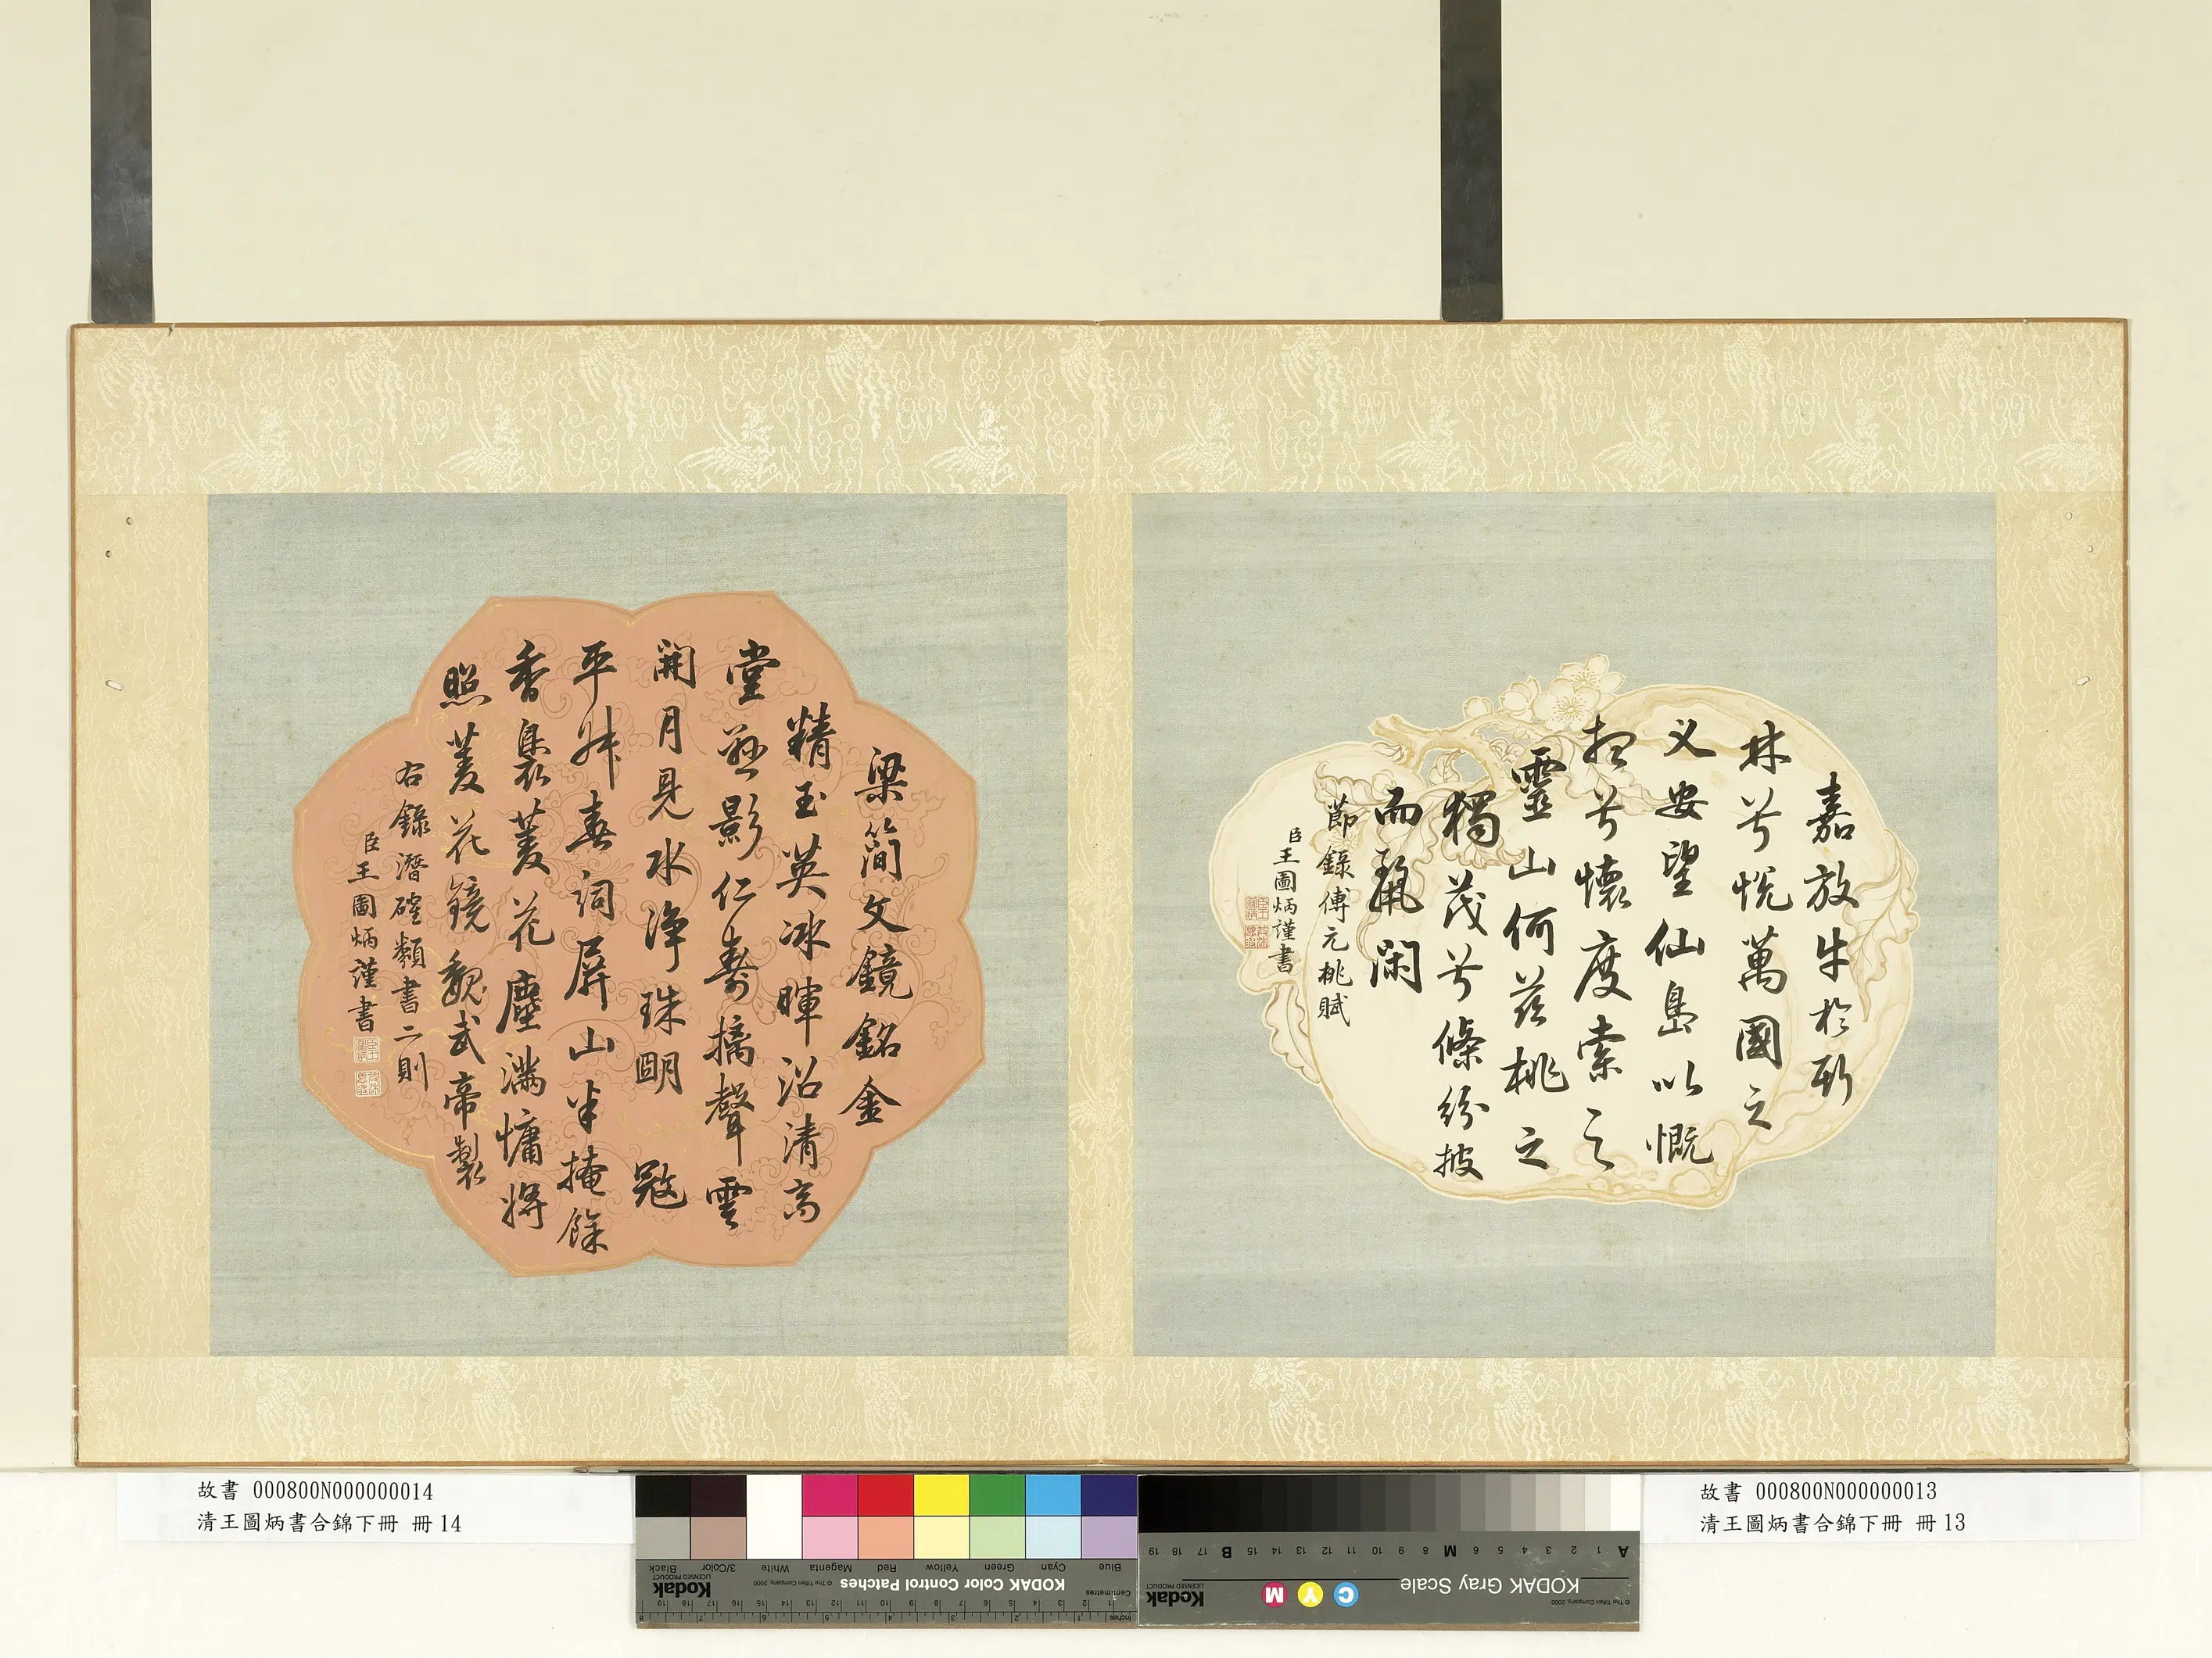 嘉放牛於斯
林兮悅萬國之
乂安望仙島以慨
想兮懷度索之
靈山何茲桃之
獨茂兮條紛披
而麗閑
節錄傅元桃賦
臣王圖炳謹書
梁簡文鏡銘金
精玉英冰暉沼清高
堂懸影仁壽摛聲雲
開月見水淨珠明 寇
平仲春詞屏山半掩餘
香裊菱花塵滿慵將
照菱花鏡魏武帝製
右錄潛確類書二則
臣王圖炳謹書
故書 000800N000000014
清王圖炳書合錦下冊 冊14
故書 000800N000000013
清王圖炳書合錦下冊 冊13
Blue Cyan Green Yellow Red Magenta White 3/Color Black
KODAK Color Control Patches
© The Tiffen Company, 2000
Kodak
LICENSED PRODUCT
Centimetres
Inches
A 1 2 3 4 5 6 M 8 9 10 11 12 13 14 15 B 17 18 19
KODAK Gray Scale
C Y M
© The Tiffen Company, 2000
Kodak
LICENSED PRODUCT